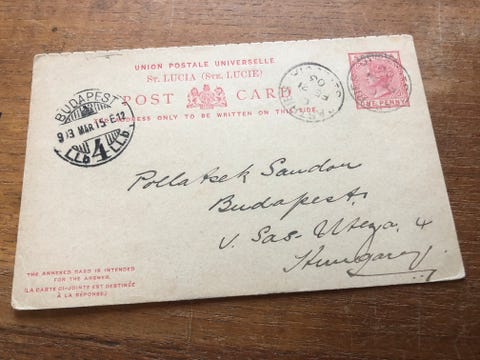 UNION POSTALE UNIVERSELLE
ST. LUCIA (STE. LUCIE)
POST CARD
THE ADDRESS ONLY TO BE WRITTEN ON THIS SIDE.
ONE PENNY
BUDAPEST
903 MAR 15 E12
4
Pollatsek Sandor
Budapest,
V. Sas-Utcza, 4
Hungary
THE ANNEXED CARD IS INTENDED
FOR THE ANSWER.
(LA CARTE CI-JOINTE EST DESTINÉE
À LA RÉPONSE.)